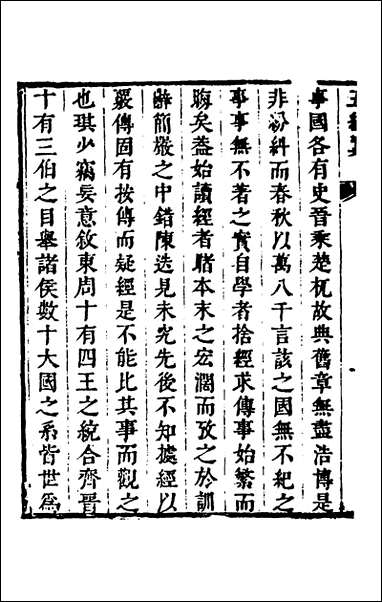 事國各有史晉乘楚杌故典舊章無盡浩博是
非紛糾而春秋以萬八千言該之國無不紀之
事事無不著之實自學者捨經求傳事始繁而
晦矣蓋始讀經者睹本末之宏濶而攷之於訓
辭簡嚴之中錯陳迭見未究先後不知據經以
嚴傳固有按傳而疑經是不能比其事而觀之
也琪少竊妄意敘東周十有四王之統合齊晉
十有三伯之目舉諸侯數十大國之系皆世爲